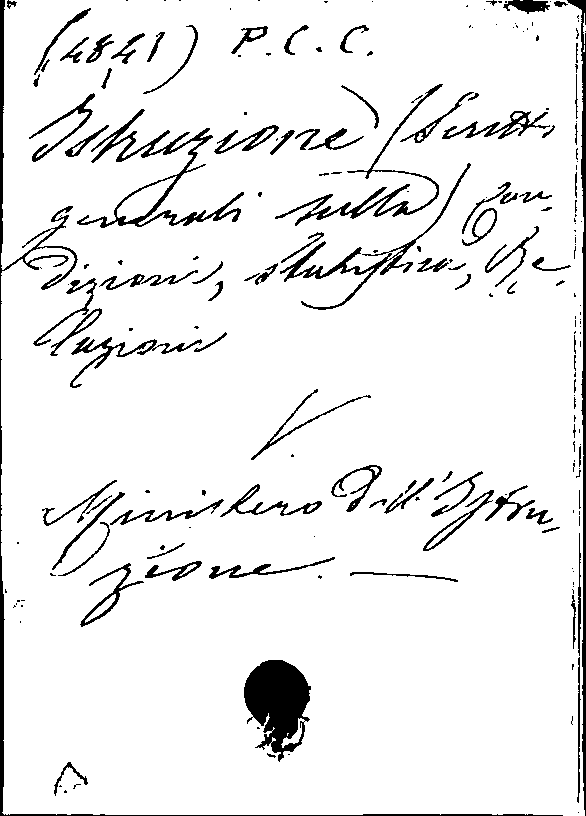 (4841) P.C.C.
Istruzione (Scritti
generali sulla) Con-
dizioni, statistica, Re-
lazioni
V.
Ministero dell'Istru-
zione. —